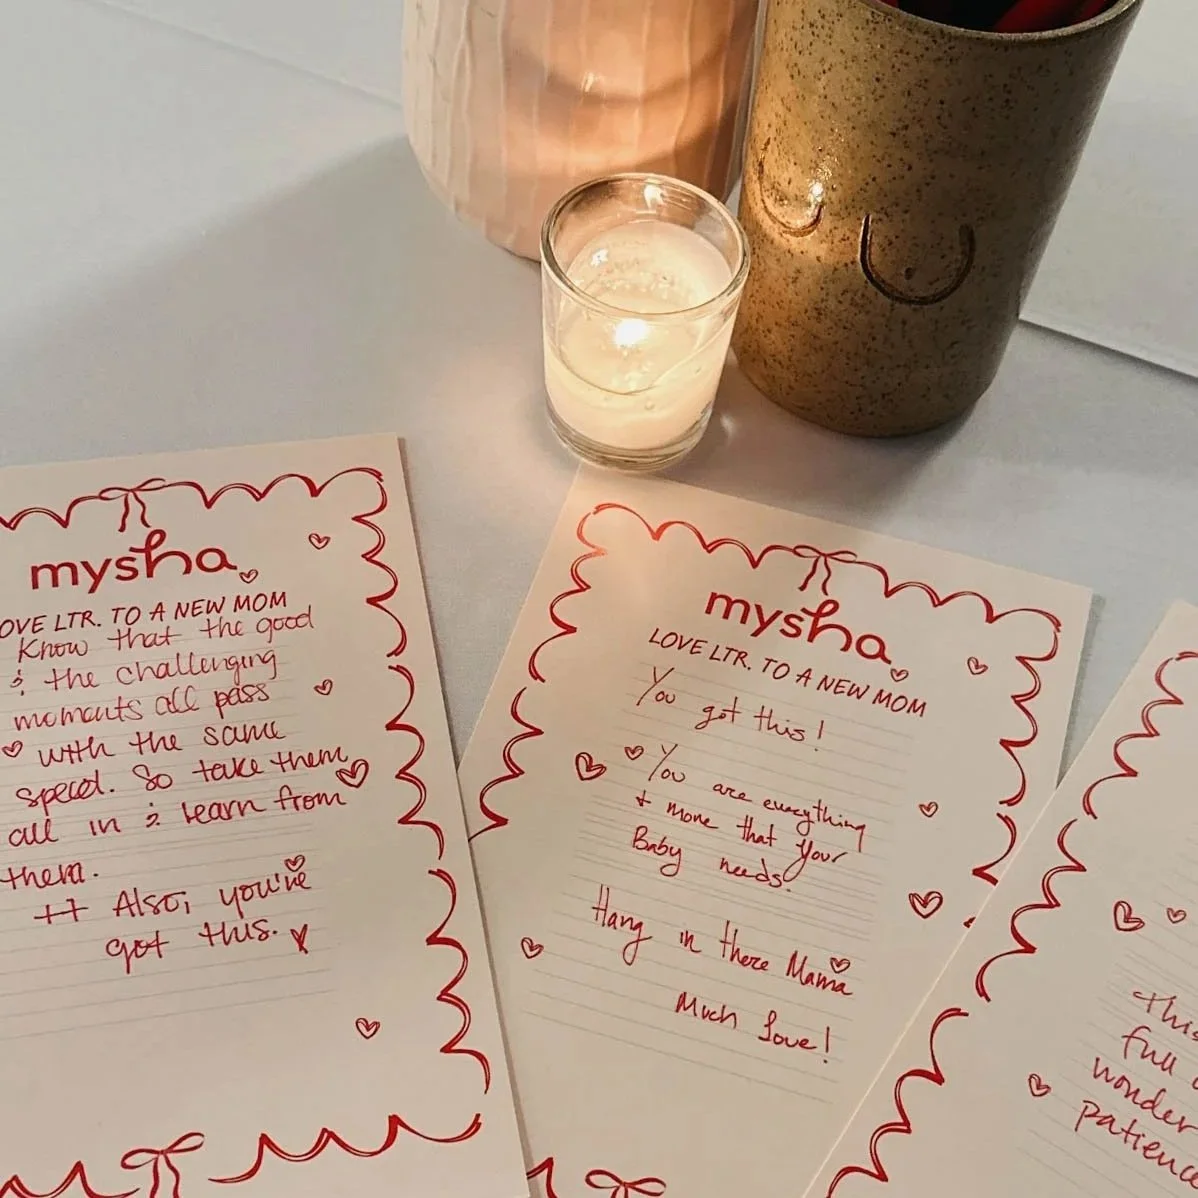 mysha
LOVE LTR. TO A NEW MOM
Know that the good
& the challenging
moments all pass
with the same
speed. So take them
all in & learn from
them.
++ Also, you've
got this.
mysha
LOVE LTR. TO A NEW MOM
You got this!
You are everything
+ more that your
Baby needs.
Hang in there Mama
Much Love!
This
full
wonder
patienc